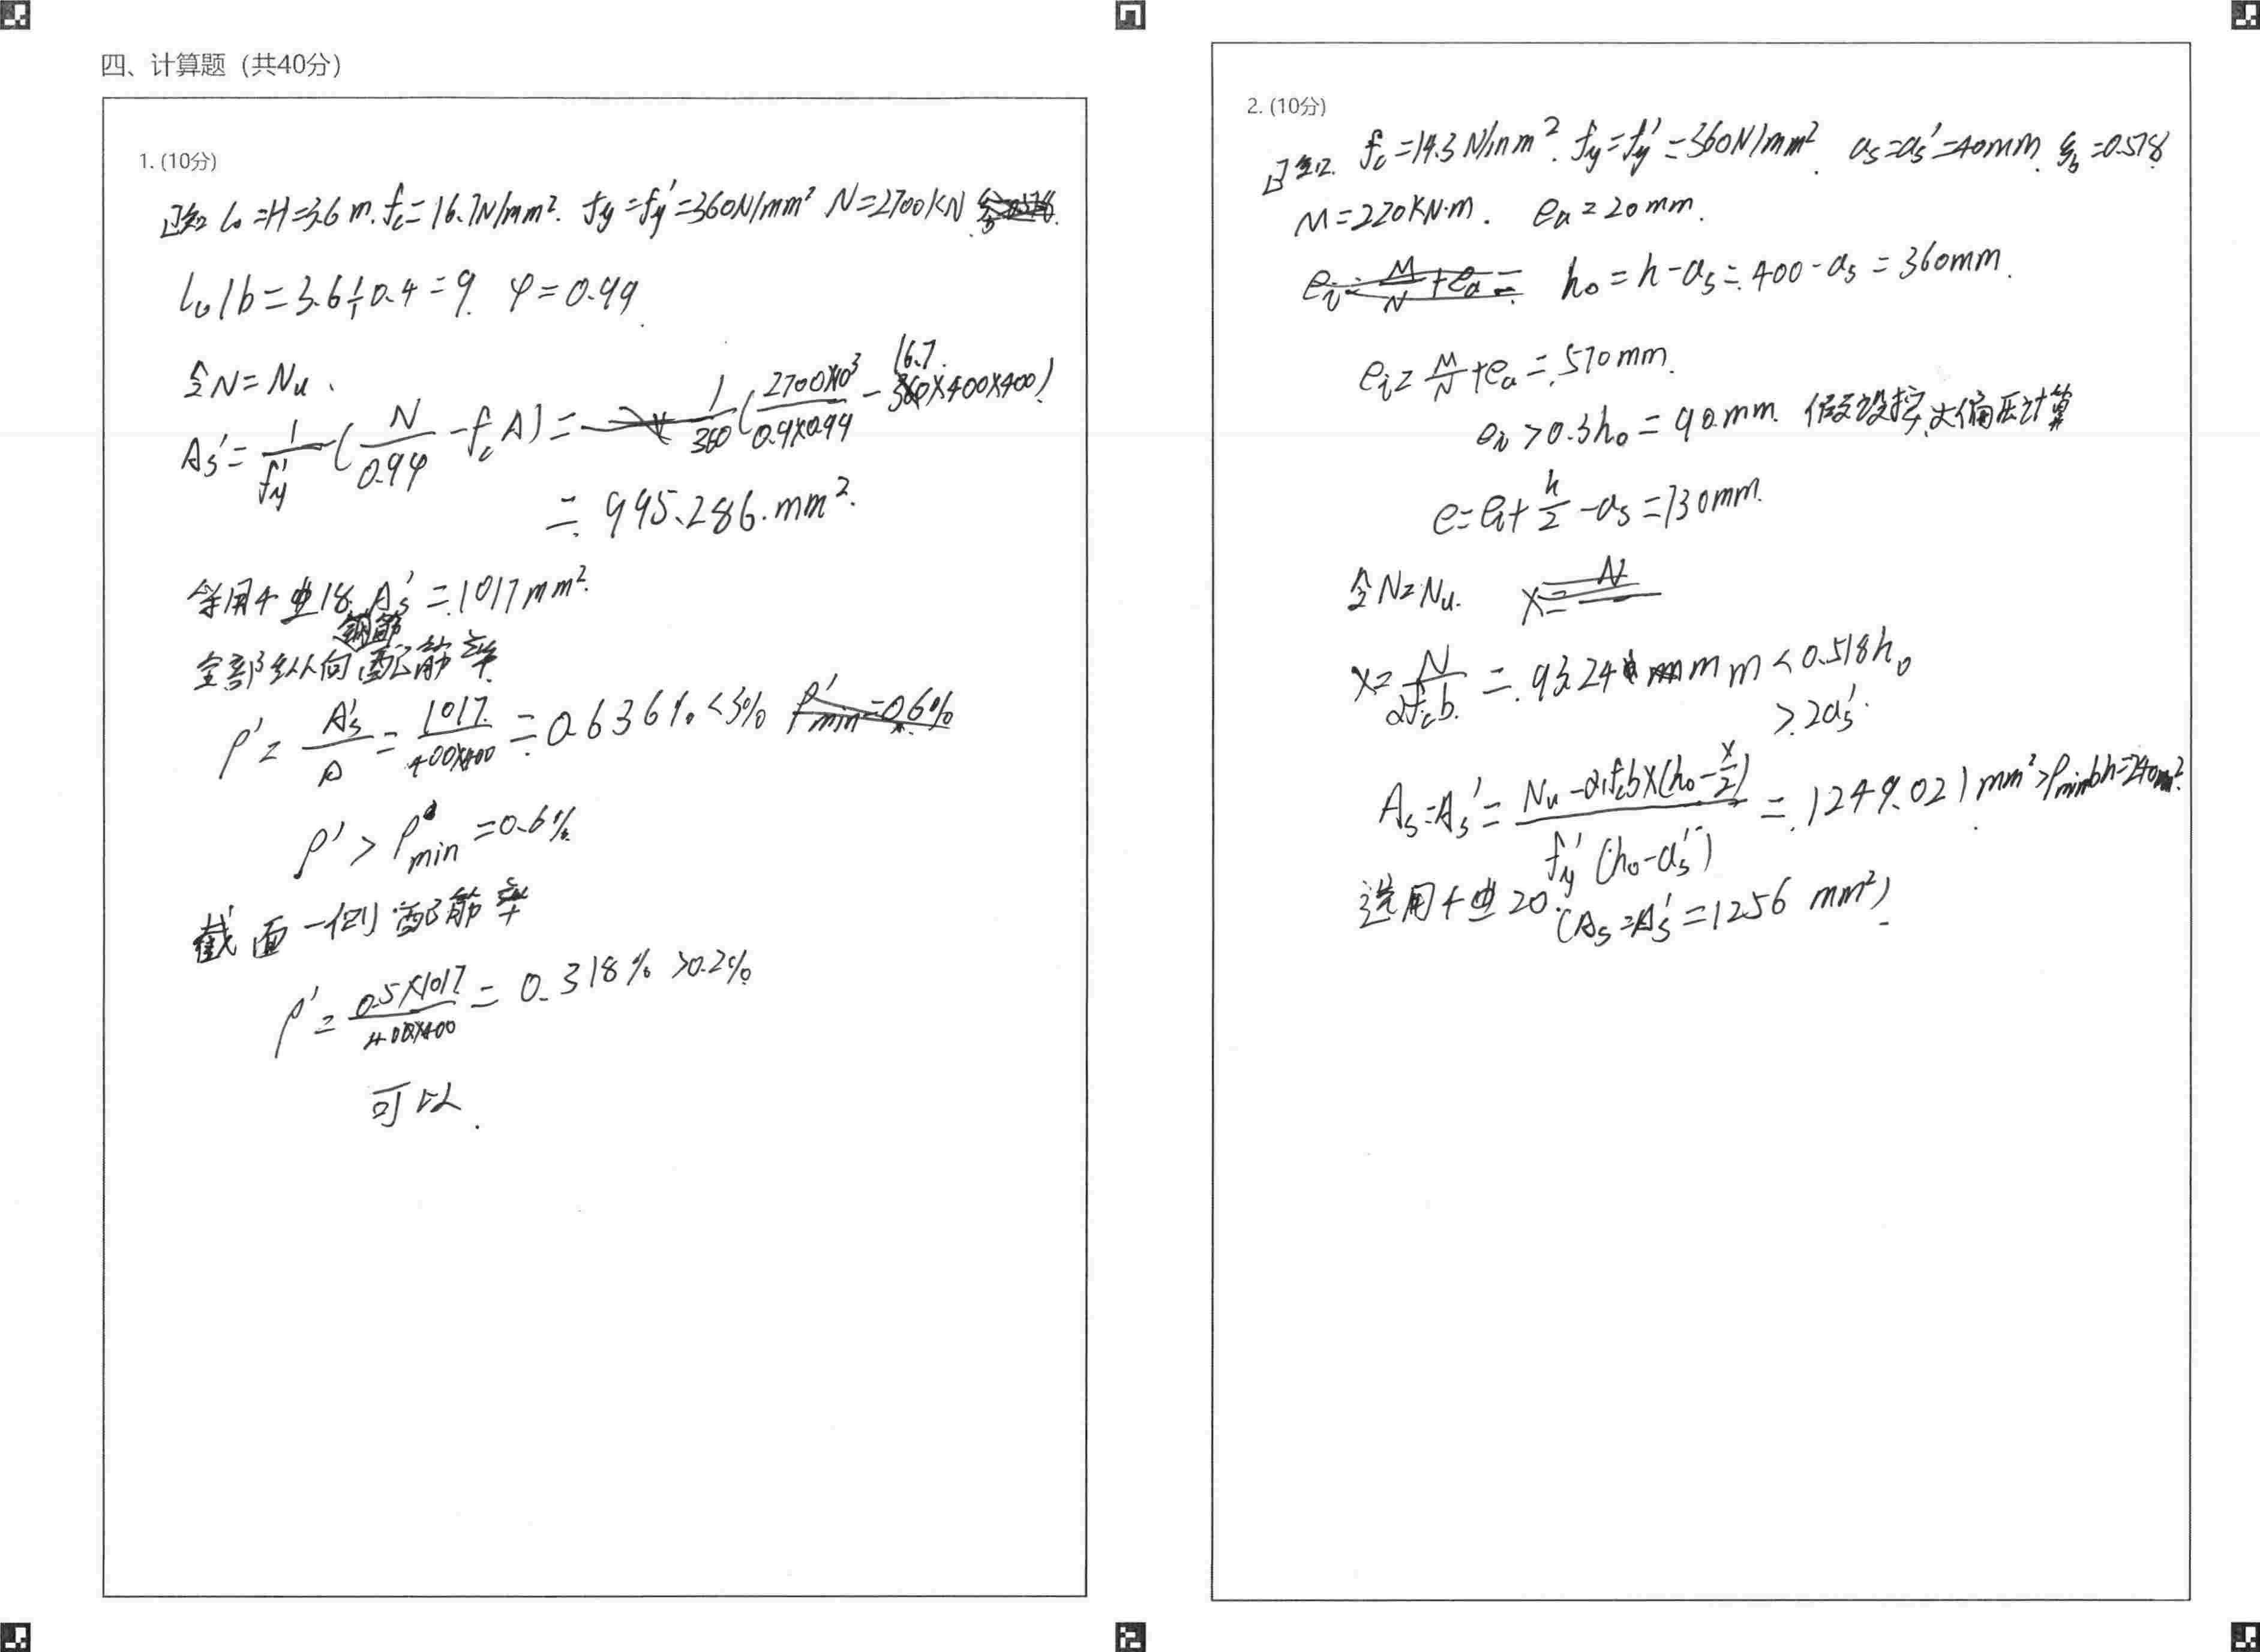 四、计算题（共40分）
1. (10分)
已知 l₀=H=3.6m. fc=16.7N/mm². fy=fy'=360N/mm² N=2700KN
l₀/b=3.6÷0.4=9. φ=0.99.
令N=Nu、
As'=1/fy'(N/0.9φ-fcA)=1/360(2700×10³/0.9×0.99-16.7×400×400)
=995.286.mm².
等用4⌀18. As'=1017mm².
全部纵向钢筋配筋率
ρ'=As'/A=1017/400×400=0.636%<3%
ρ'>ρmin=0.6%
截面一侧配筋率
ρ'=0.5×1017/400×400=0.318%>0.2%
可以.
2. (10分)
已知. fc=14.3N/mm². fy=fy'=360N/mm². as=as'=40mm. ξb=0.518
M=220KN·m. ea=20mm.
h₀=h-as=400-as=360mm.
ei=M/N+ea=570mm.
ei>0.3h₀=90mm. 假设按大偏压计算
e=ei+h/2-as=730mm.
令N=Nu.
x=N/αfcb.=93.24mm<0.518h₀
>2as'.
As=As'=Nu-α₁fcbx(h₀-x/2)/fy'(h₀-as')=1249.021mm²>ρminbh=240mm².
选用4⌀20.(As=As'=1256mm²)